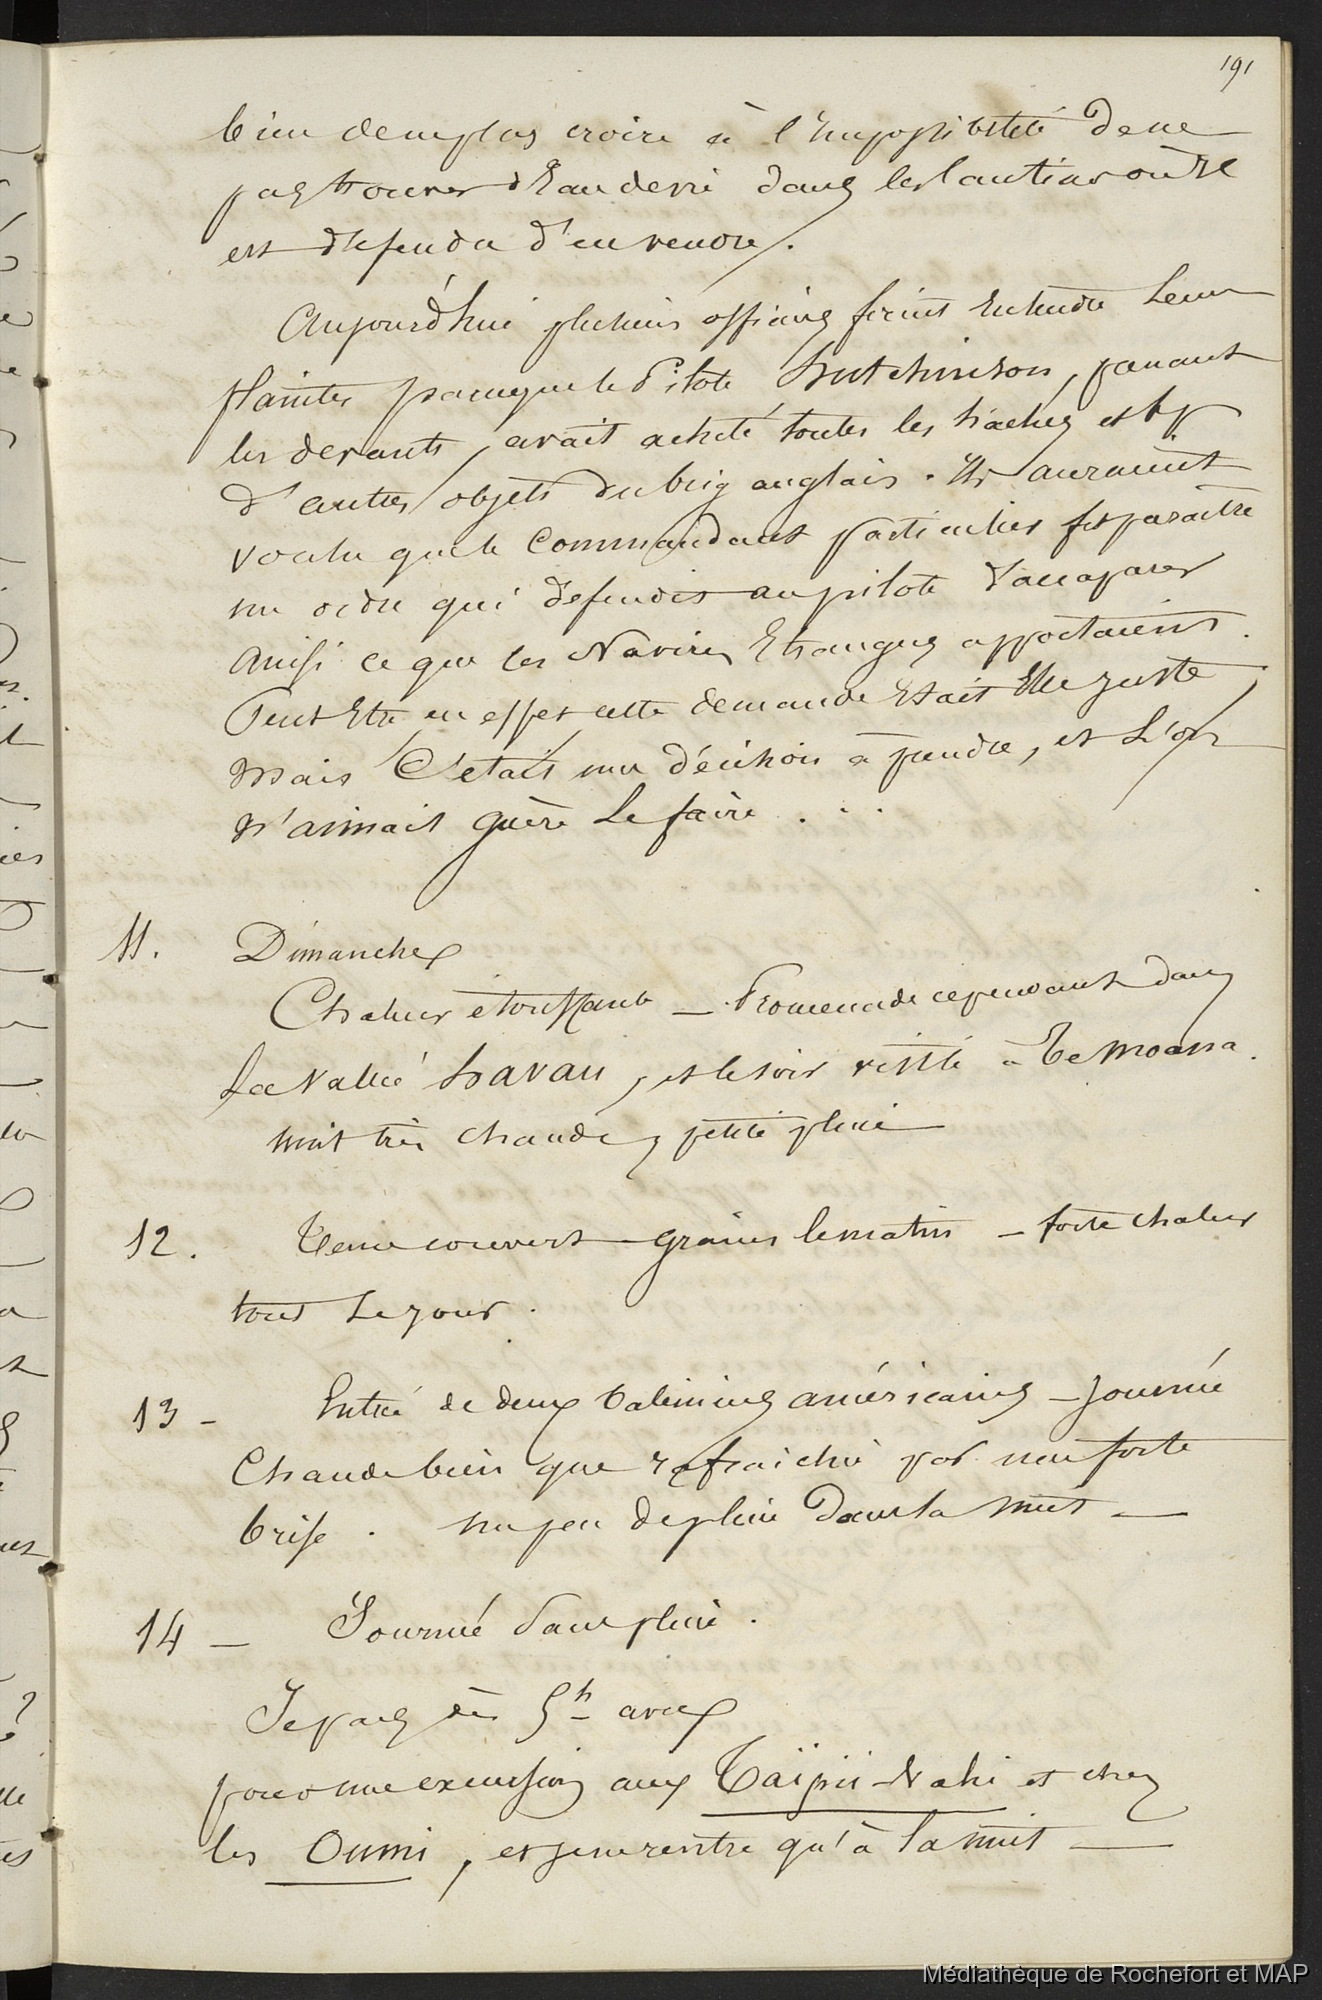 191
bien de ne plus croire à l'Impossibilité de ne
pas trouver d'Eau de vie dans les Cantines où Il
est défendu d'en vendre.
Aujourd'hui plusieurs officiers firent Entendre Leurs
plaintes parceque le Pilote Hutchinson, prenant
les devants, avait acheté toutes les haches et bp
d'autres objets du brig anglais. Ils auraient
voulu que le Commandant particulier fit paraître
un ordre qui défendit au pilote d'accaparer
ainsi ce que les Navires Etrangers apportaient.
Peut Etre en effet cette demande Etait Elle juste,
mais C'etait une décision à prendre, et L'on
N'aimait guère Le faire . . .
11. Dimanche
Chaleur étouffante — Promenade cependant dans
La Vallée Havau, et le soir visite à Te Moana.
nuit très chaude, petite pluie
12. Tems couvert grains le matin — forte chaleur
tout Le jour.
13 — Entrée de deux baleiniers américains — Journée
Chaude bien que rafraichie par une forte
brise. un peu de pluie Dans la nuit —
14 — Journée Sans pluie.
Je pars dès 5h avec
pour une excursion aux Taïpii-Vahi et chez
les Oumi, et je ne rentre qu'à la nuit —
Médiathèque de Rochefort et MAP